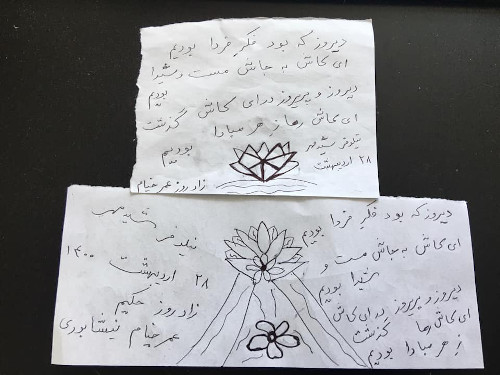 دیروز که بود فکر فردا بودیم
ای کاش به جاش مست و شیدا
بودیم
دیروز و پریروز در ای کاش گذشت
ای کاش رها ز هر مبادا
بودیم
نیلوفر شیدمهر
۲۸ اردیبهشت
زادروز عمر خیام
دیروز که بود فکر فردا بودیم
ای کاش به جاش مست و
شیدا بودیم
دیروز و پریروز در ای کاش
گذشت
ای کاش رها
ز هر مبادا بودیم
نیلوفر شیدمهر
۲۸ اردیبهشت ۱۴۰۰
زادروز حکیم
عمر خیام نیشابوری